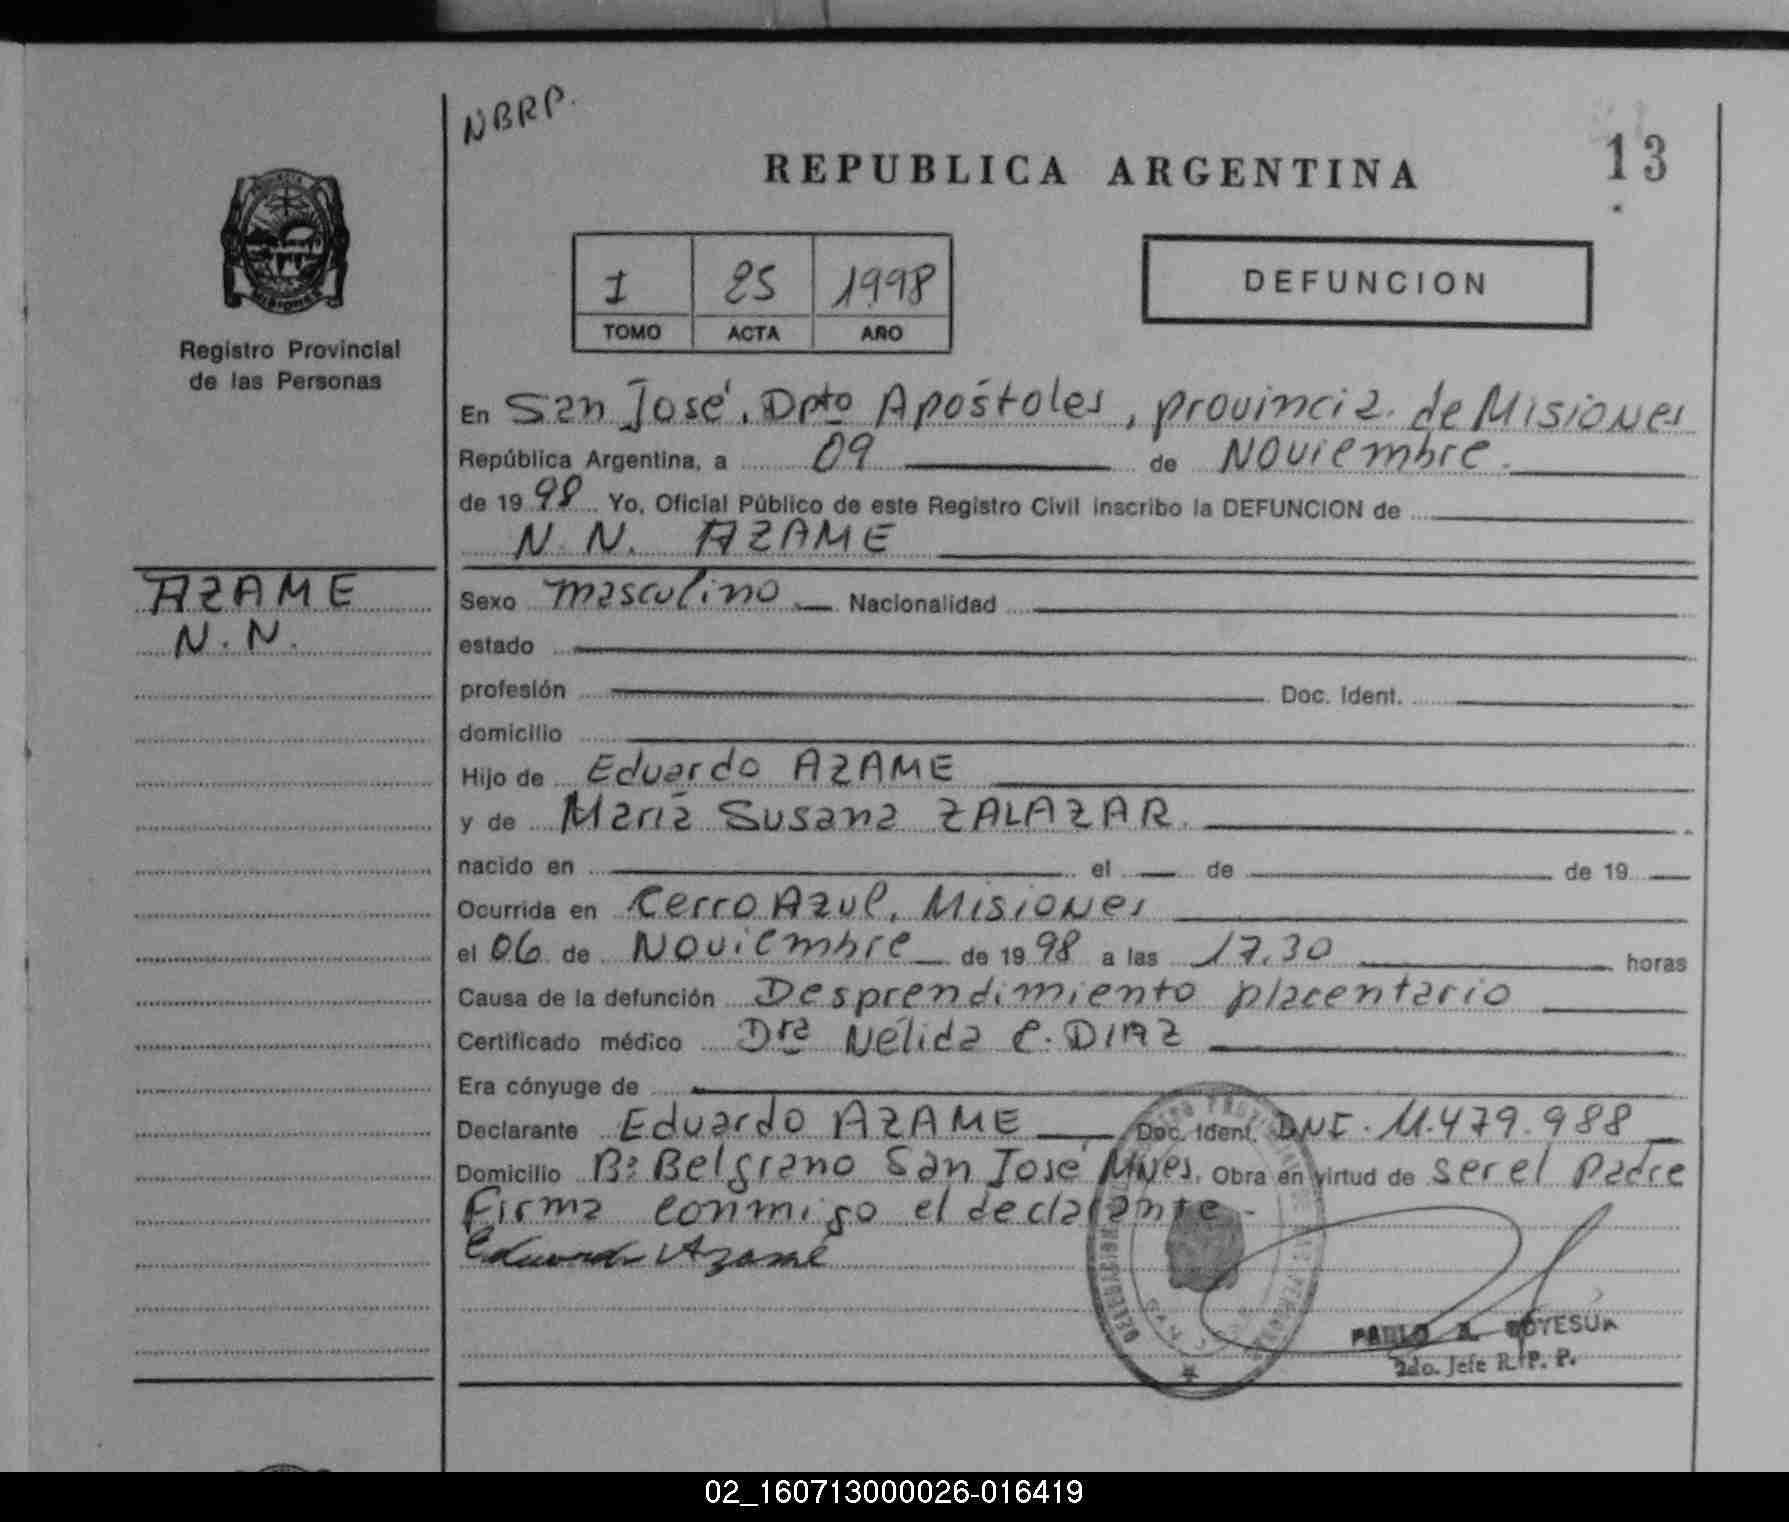 NBRP.
REPUBLICA ARGENTINA
13
I 25 1998
TOMO ACTA AÑO
DEFUNCION
MISIONES
Registro Provincial
de las Personas
En San José, Dpto Apóstoles, provincia de Misiones
República Argentina, a 09 de Noviembre
de 1998 Yo, Oficial Público de este Registro Civil inscribo la DEFUNCION de
N. N. AZAME
AZAME
N. N.
Sexo masculino Nacionalidad
estado
profesión Doc. Ident.
domicilio
Hijo de Eduardo AZAME
y de María Susana ZALAZAR.
nacido en el de de 19
Ocurrida en Cerro Azul, Misiones
el 06 de Noviembre de 1998 a las 17.30 horas
Causa de la defunción Desprendimiento placentario
Certificado médico Dra Nélida C. DIAZ
Era cónyuge de
Declarante Eduardo AZAME Doc. Ident. DNI. 11.479.988
Domicilio Bº Belgrano San José Mnes. Obra en virtud de ser el padre
Firma conmigo el declarante.-
Eduardo Azamé
PABLO
2do. Jefe R. P. P.
02_160713000026-016419